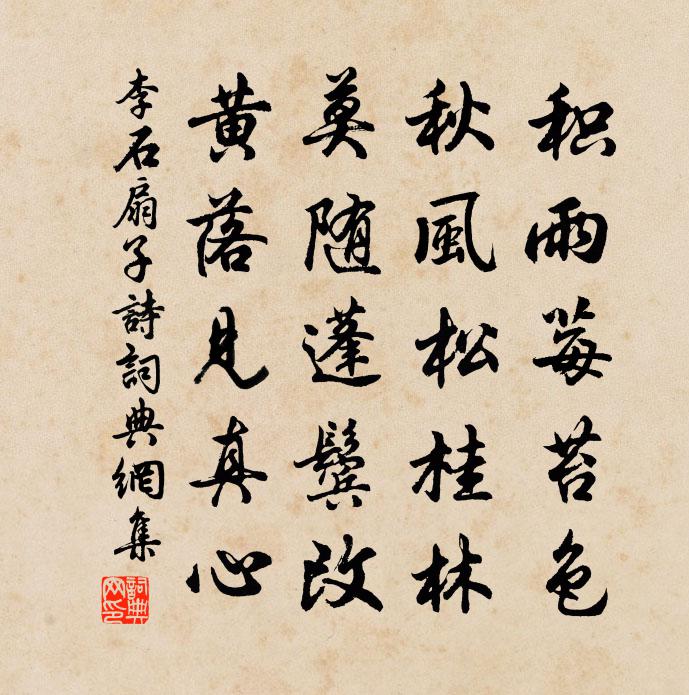 积雨莓苔色
秋風松桂林
莫随蓬鬓改
黄落見真心
李石扇子詩詞典網集
詞典網印